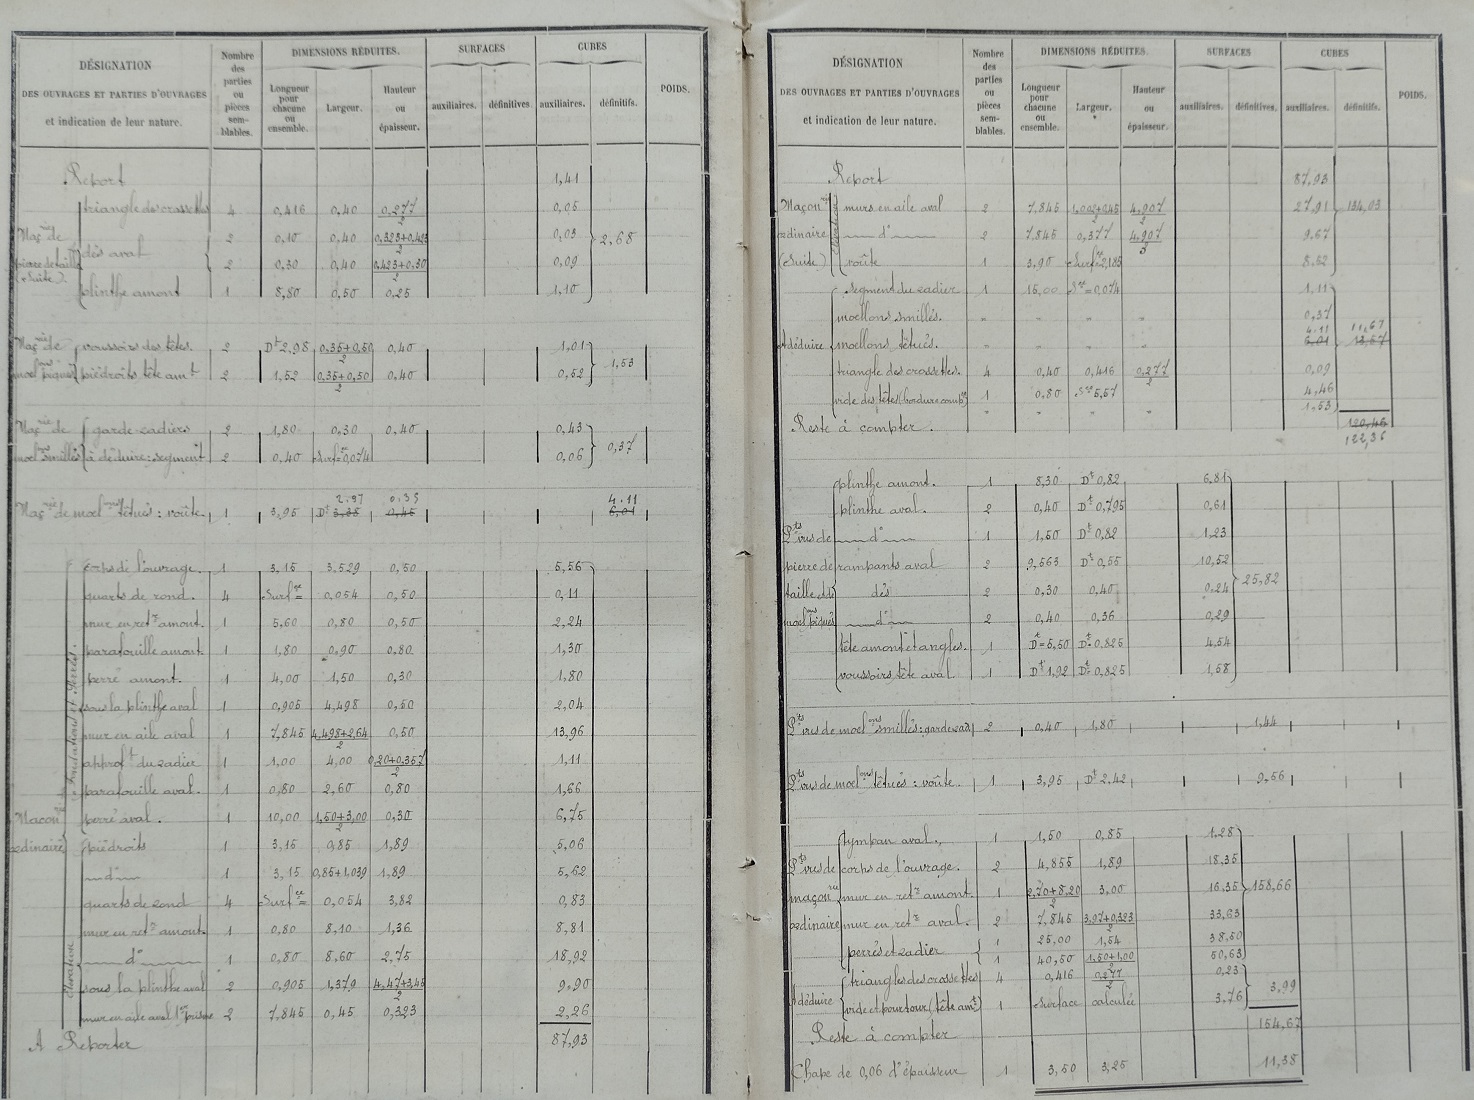 DÉSIGNATION
DES OUVRAGES ET PARTIES D'OUVRAGES
et indication de leur nature.
Nombre des parties ou pièces sem-blables.
DIMENSIONS RÉDUITES.
Longueur pour chacune ou ensemble.
Largeur.
Hauteur ou épaisseur.
SURFACES
auxiliaires. définitives.
CUBES
auxiliaires. définitifs.
POIDS.
Report 1,41
Maç.rie de pierre de taille (Suite)
triangle des crossettes 4 0,416 0,40 0,277/2 0,05
dés aval 2 0,10 0,40 0,323+0,423/2 0,03 2,68
2 0,30 0,40 0,423+0,30/2 0,09
plinthe amont 1 8,80 0,50 0,25 1,10
Maç.rie de moel.ons piqués
voussoirs des têtes. 2 Dt 2,98 0,35+0,50/2 0,40 1,01
piédroits tête am.t 2 1,52 0,35+0,50/2 0,40 0,52 1,53
Maç.rie de moel.ons smillés
garde-radiers 2 1,80 0,30 0,40 0,43
à déduire: segment 2 0,40 Surf.=0,074 0,06 0,37
2.97 0.35 4.11
Maç.rie de moel.ons têtués: voûte. 1 3,95 Dt 3,38 0,45 6,01
Maçon.rie ordinaire
Fondations et Perrés.
corps de l'ouvrage. 1 3,15 3,529 0,50 5,56
quarts de rond. 4 Surf.ce = 0,054 0,50 0,11
mur en ret.r amont. 1 5,60 0,80 0,50 2,24
parafouille amont 1 1,80 0,90 0,80 1,30
perré amont. 1 4,00 1,50 0,30 1,80
sous la plinthe aval 1 0,905 4,498 0,50 2,04
mur en aile aval 1 7,845 4,498+2,64/2 0,50 13,96
approf.t du radier 1 1,00 4,00 0,20+0,357/2 1,11
parafouille aval. 1 0,80 2,60 0,80 1,66
perré aval. 1 10,00 1,50+3,00/2 0,30 6,75
Élévation
piédroits 1 3,15 0,85 1,89 5,06
d° 1 3,15 0,85+1,039 1,89 5,62
quarts de rond 4 Surf.ce = 0,054 3,82 0,83
mur en ret.r amont. 1 0,80 8,10 1,36 8,81
d° 1 0,80 8,60 2,75 18,92
sous la plinthe aval 2 0,905 1,379 4,47+3,45/2 9,90
mur en aile aval 1er prisme 2 7,845 0,45 0,323 2,26
A Reporter 87,93
DÉSIGNATION
DES OUVRAGES ET PARTIES D'OUVRAGES
et indication de leur nature.
Nombre des parties ou pièces sem-blables.
DIMENSIONS RÉDUITES.
Longueur pour chacune ou ensemble.
Largeur.
Hauteur ou épaisseur.
SURFACES
auxiliaires. définitives.
CUBES
auxiliaires. définitifs.
POIDS.
Report 87,93
Maçon.rie ordinaire (Suite)
murs en aile aval 2 7,845 1,002+0,45/2 4,907/2 27,91 134,03
d° 2 7,845 0,377 4,907/3 9,67
voûte 1 3,90 Surf.ce=2,185 8,52
A déduire
segment du radier 1 15,00 S.ce=0,074 1,11
moellons smillés. " " " 0,37
4.11 11,67
moellons têtués. " " " 6,01 13,57
triangle des crossettes. 4 0,40 0,416 0,277/2 0,09
vide des têtes (bordure comp.se) 1 0,80 S.ce 5,57 4,46
" " " 1,53
Reste à compter. 120,46
122,36
P.ts vus de pierre de taille et de moel.ons piqués
plinthe amont. 1 8,30 Dt 0,82 6,81
plinthe aval. 2 0,40 Dt 0,795 0,61
d° 1 1,50 Dt 0,82 1,23
rampants aval 2 9,563 Dt 0,55 10,52
dés 2 0,30 0,40 0,24 25,82
d° 2 0,40 0,36 0,29
tête amont et angles. 1 Dt=5,50 Dt=0,825 4,54
voussoirs tête aval 1 Dt 1,92 Dt=0,825 1,58
P.ts vus de moel.ons smillés: garde-rad. 2 0,40 1,80 1,44
P.ts vus de moel.ons têtués: voûte. 1 3,95 Dt 2,42 9,56
P.ts vus de maçon.rie ordinaire
tympan aval. 1 1,50 0,85 1,28
corps de l'ouvrage. 2 4,855 1,89 18,35
mur en ret.r amont. 1 2,70+8,20/2 3,00 16,35 158,66
mur en ret.r aval. 2 7,845 3,97+0,323/2 33,63
perrés et radier 1 25,00 1,54 38,50
1 40,50 1,50+1,00/2 50,63
A déduire
triangles des crossettes 4 0,416 0,277/2 0,23
vide et pourtour (tête am.t) 1 Surface calculée 3,76 3,99
Reste à compter 154,67
Chape de 0,06 d'épaisseur 1 3,50 3,25 11,38